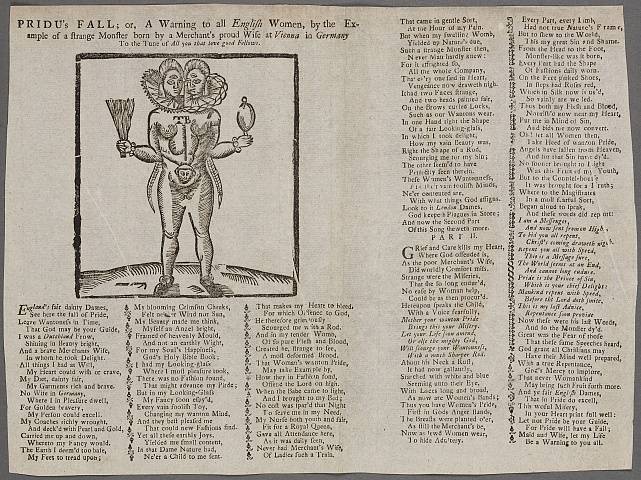 PRIDU's FALL; or, A Warning to all English Women, by the Ex-
ample of a strange Monster born by a Merchant's proud Wife at Vienna in Germany
To the Tune of All you that love good Fellows.
TB
England's fair dainty Dames,
See here the fall of Pride,
Leave Wantonness in Time,
That God may be your Guide,
I was a Dutchland Frow,
Shining in Beauty bright,
And a brave Merchants Wife,
In whom he took Delight.
All things I had at Will,
My Heart could wish or crave,
My Diet, dainty fair,
My Garments rich and brave.
No Wife in Germany,
Where I in Pleasure dwell,
For Golden bravery,
My Person could excell.
My Coaches richly wrought,
And deck'd with Pearl and Gold,
Carried me up and down,
Whereto my Fancy would.
The Earth I deem'd too base,
My Feet to tread upon;
My blooming Crimson Cheeks,
Felt neither Wind nor Sun,
My Beauty made me think,
Myself an Angel bright,
Framed of heavenly Mould,
And not an earthly Wight.
For my Soul's Happiness,
God's Holy Bible Book:
I had my Looking-glass
Where I most pleasure took.
There was no Fashion found,
That might advance my Pride;
But in my Looking-Glass
My Fancy soon espy'd,
Every vain foolish Toy,
Changing my wanton Mind,
And they best pleased me
That could new Fashions find.
Yet all these earthly Joys,
Yielded me small content,
In that Dame Nature had,
Ne'er a Child to me sent.
That makes my Heart to bleed,
For which Offence to God,
He therefore grievously
Scourged me with a Rod.
And in my tender Womb,
Of so pure Flesh and Blood,
Created he, strange to see,
A most deformed Brood.
That Women's wanton Pride,
May take Example by,
How they in Fashions fond,
Offend the Lord on high.
When the Babe came to light,
And I brought to my Bed;
No cost was spar'd that Night
To serve me in my Need.
My Nurse both young and fair,
Fit for a Royal Queen,
Gave all Attendance here,
As it was daily seen,
Never had Merchant's Wife,
Of Ladies such a Train,
That came in gentle Sort,
At the Hour of my Pain.
But when my swelling Womb,
Yielded up Nature's due,
Such a strange Monster then,
Never Man hardly knew:
For it affrighted so,
All the whole Company,
That ev'ry one said in Heart,
Vengeance now draweth nigh.
It had two Faces strange,
And two heads painted fair,
On the Brows curled Locks,
Such as our Wantons wear.
In one Hand right the Shape
Of a fair Looking-glass,
In which I took delight,
How my vain Beauty was,
Right the Shape of a Rod,
Scourging me for my Sin;
The other seem'd to have
Perfectly seen therein.
These Women's Wantonness,
And their vain foolish Minds,
Ne'er contented are,
With what things God assigns.
Look to it London Dames,
God keepeth Plagues in Store;
And now the Second Part
Of this Song sheweth more.
PART II.
GRief and Care kills my Heart,
Where God offended is,
As the poor Merchant's Wife,
Did worldly Comfort miss.
Strange were the Miseries,
That she so long endur'd,
No ease by Woman's help
Could be as then procur'd.
Hereupon speaks the Child,
With a Voice fearfully,
Mother your wanton Pride
Brings this your Misery.
Let your Life soon amend,
Or else the mighty God,
Will scourge your Wantonness,
With a much sharper Rod.
About his Neck a Ruff,
It had now gallantly,
Starched with white and blue
Seeming unto their Eye,
With Laces long and broad,
As now are Women's Bands;
Thus you have Women's Pride,
First in Gods Anger stands.
The Breasts were planted o'er,
As still the Merchant's be,
Now as lewd Women wear,
To hide Adultery.
Every Part, every Limb,
Had not true Nature's Frame,
But to shew to the World,
This my great Sin and Shame.
From the Head to the Foot,
Monster-like was it born,
Every Part had the Shape
Of Fashions daily worn.
On the Feet pinked Shoes,
In steps had Roses red,
Which in Silk now is us'd,
So vainly are we led.
Thus both my Flesh and Blood,
Nourish'd now near my Heart,
Put me in Mind of Sin,
And bids me now convert.
Oh! let all Women then,
Take Heed of wanton Pride,
Angels have fallen from Heaven,
And for that Sin have dy'd.
No sooner brought to Light
Was this Fruit of my Youth,
But to the Council-house
It was brought for a Truth;
Where to the Magistrates
In a most fearful Sort,
Began aloud to speak,
And these words did report:
I am a Messenger,
And now sent from on High,
To bid you all repent,
Christ's coming draweth nigh.
Repent you all with Speed,
This is a Message sure,
The World seems at an End,
And cannot long endure.
Pride is the Prince of Sin,
Which is your chief Delight:
Mankind repent with Speed,
Before the Lord doth smite,
This is my last Advice,
Repentance soon promise
Now these were his last Words,
And so the Monster dy'd.
Great was the Fear of those
That these same Speeches heard,
God grant all Christians may
Have their Mind well prepared,
With a true Repentance,
God's Mercy to implore,
That never Womankind
May bring such Fruit forth more.
And ye fair English Dames,
That in Pride do excell,
This woful Misery,
In your Heart print full well:
Let not Pride be your Guide,
For Pride will have a Fall;
Maid and Wife, let my Life
Be a Warning to you all.